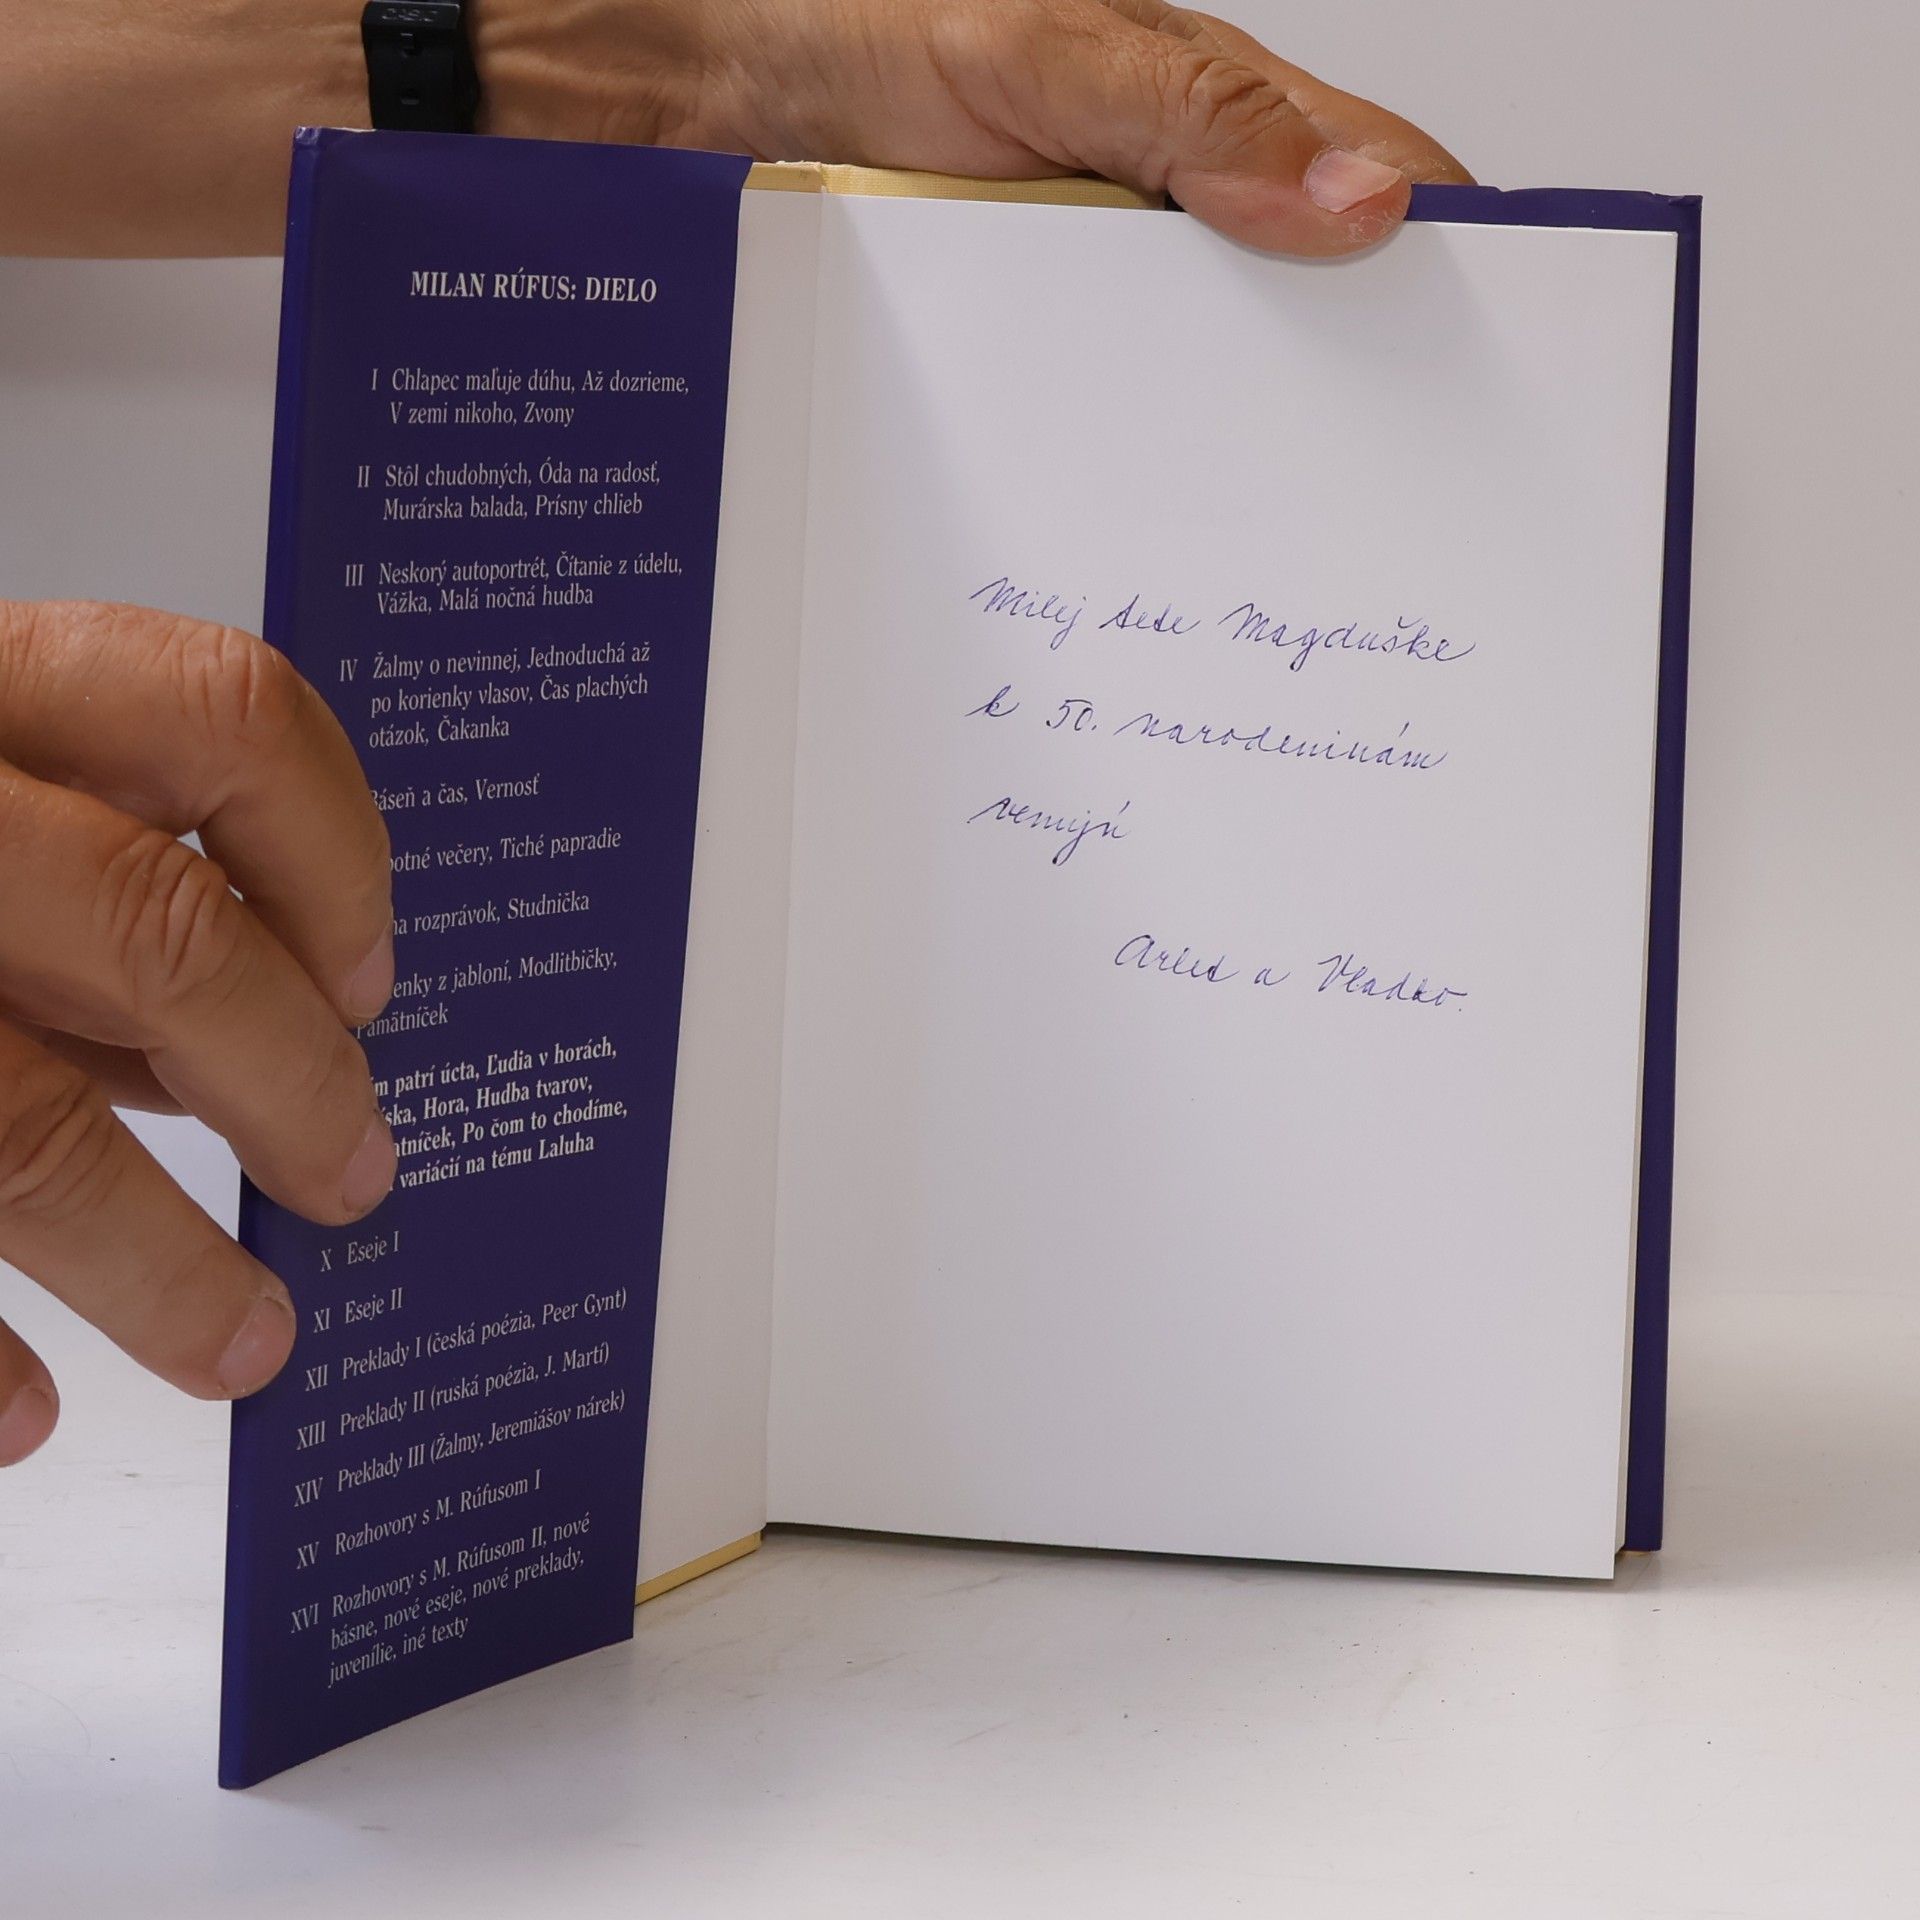 CASIO
MILAN RÚFUS: DIELO
I Chlapec maľuje dúhu, Až dozrieme,
V zemi nikoho, Zvony
II Stôl chudobných, Óda na radosť,
Murárska balada, Prísny chlieb
III Neskorý autoportrét, Čítanie z údelu,
Vážka, Malá nočná hudba
IV Žalmy o nevinnej, Jednoduchá až
po korienky vlasov, Čas plachých
otázok, Čakanka
Báseň a čas, Vernosť
večery, Tiché papradie
rozprávok, Studnička
z jabloní, Modlitbičky,
Pamätníček
patrí úcta, Ľudia v horách,
Hora, Hudba tvarov,
Po čom to chodíme,
variácií na tému Laluha
X Eseje I
XI Eseje II
XII Preklady I (česká poézia, Peer Gynt)
XIII Preklady II (ruská poézia, J. Martí)
XIV Preklady III (Žalmy, Jeremiášov nárek)
XV Rozhovory s M. Rúfusom I
XVI Rozhovory s M. Rúfusom II, nové
básne, nové eseje, nové preklady,
juvenílie, iné texty
Milej tete Magduške
k 50. narodeninám
venujú
Arlet a Vladko.